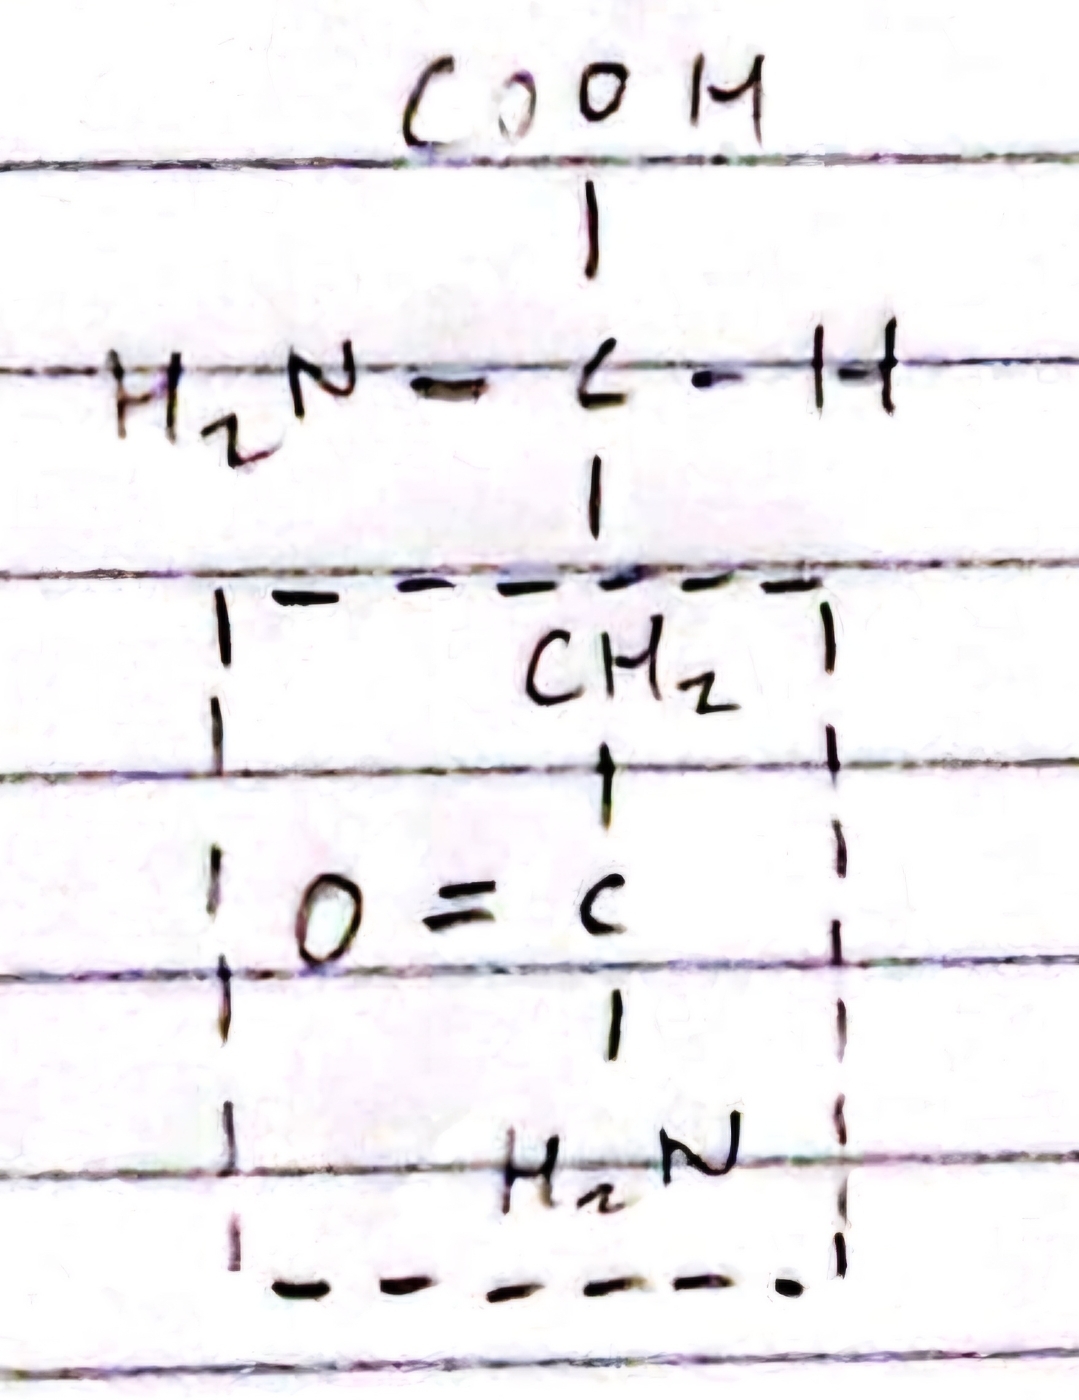 COOH
H₂N - C - H
CH₂
O = C
H₂N